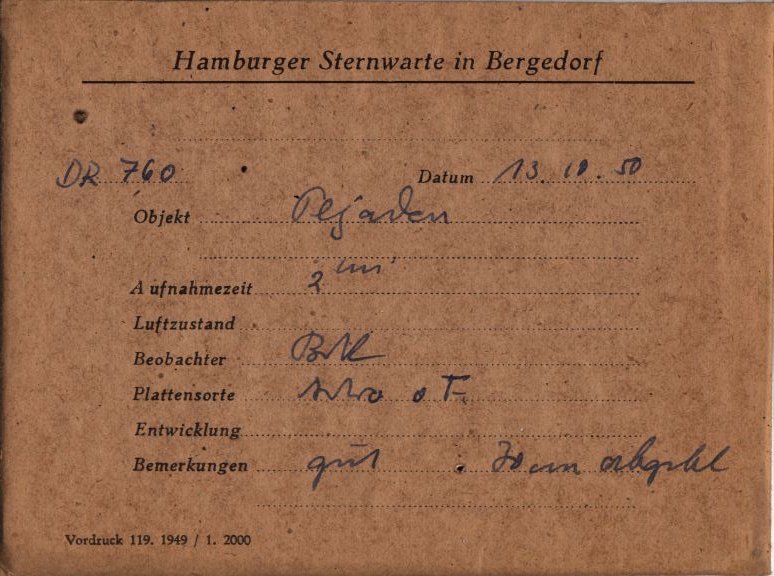 Hamburger Sternwarte in Bergedorf
DR 760 Datum 13. 10. 50
Objekt Plejaden
Aufnahmezeit 2 min
Luftzustand
Beobachter
Plattensorte Astro o. F.
Entwicklung
Bemerkungen gut.
Vordruck 119. 1949 / 1. 2000